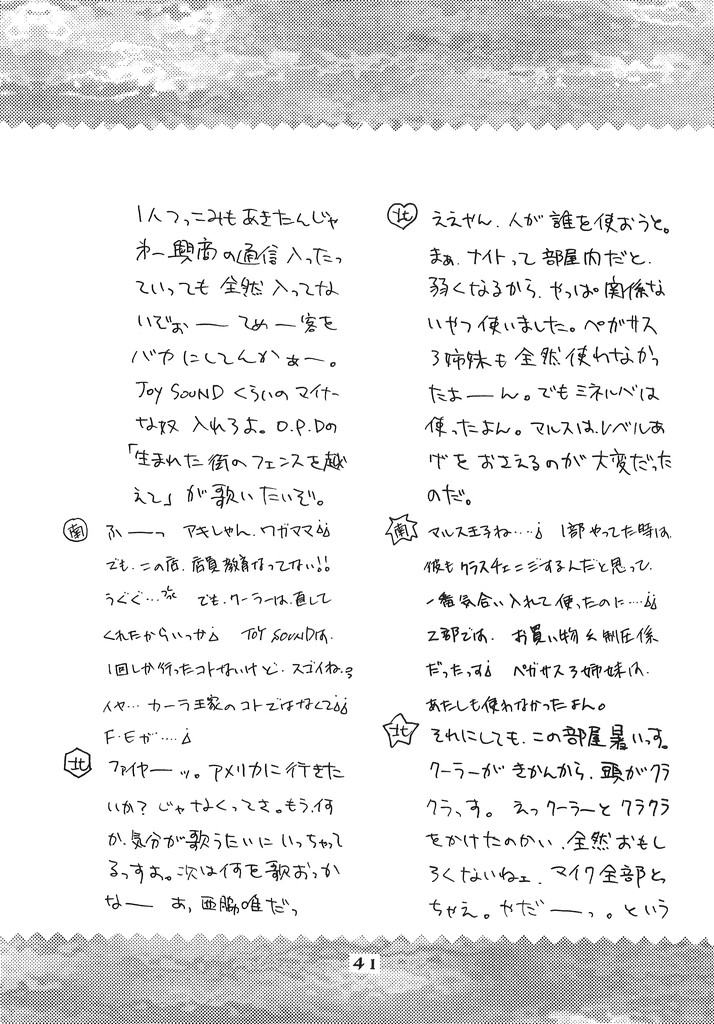 北 ええやん、人が誰を使おうと。
まぁ、ナイトって部屋内だと、
弱くなるから、やっぱ関係な
いやつ使いました。ペガサス
3姉妹も全然使わなかっ
たよーん。でもミネルバは
使ったよん。マルスは、レベルあ
げをおさえるのが大変だった
のだ。
南 マルス王子ね‥‥¡ 1部やってた時は、
彼もクラスチェンジするんだと思って、
一番気合い入れて使ったのに‥‥¡¡
2部では、お買い物&制圧係
だったっす¡ ペガサス3姉妹は、
あたしも使わなかったよん。
北 それにしても、この部屋暑いっす。
クーラーがきかんから、頭がクラ
クラっす。えっクーラーとクラクラ
をかけたのかい、全然おもし
ろくないねェ、マイク全部とっ
ちゃえ。やだーっ。という
1人つっこみもあきたんじゃ
わー興商の通信入ったっ
ていっても全然入ってな
いぞぉーてめー客を
バカにしてんかぁー。
JOY SOUNDくらいのマイナー
な奴入れろよ。O.P.Dの
「生まれた街のフェンスを越
えて」が歌いたいぞ。
南 ふーっ アキしゃん、ワガママ¡¡
でも、この店、店員教育なってない!!
うぐぐ‥‥ でも、クーラーは、直して
くれたからいっか¡ JOY SOUNDは、
1回しか行ったコトないけど、スゴイね。
イヤ‥‥カーラ王家のコトではなくて¡¡
F・Eが‥‥¡
北 ファイヤーッ。アメリカに行きた
いか?じゃなくってさ。もう、何
か、気分が歌うたいにいっちゃって
るっすよ。次は何を歌おっか
なー あ,西脇唯だっ
41